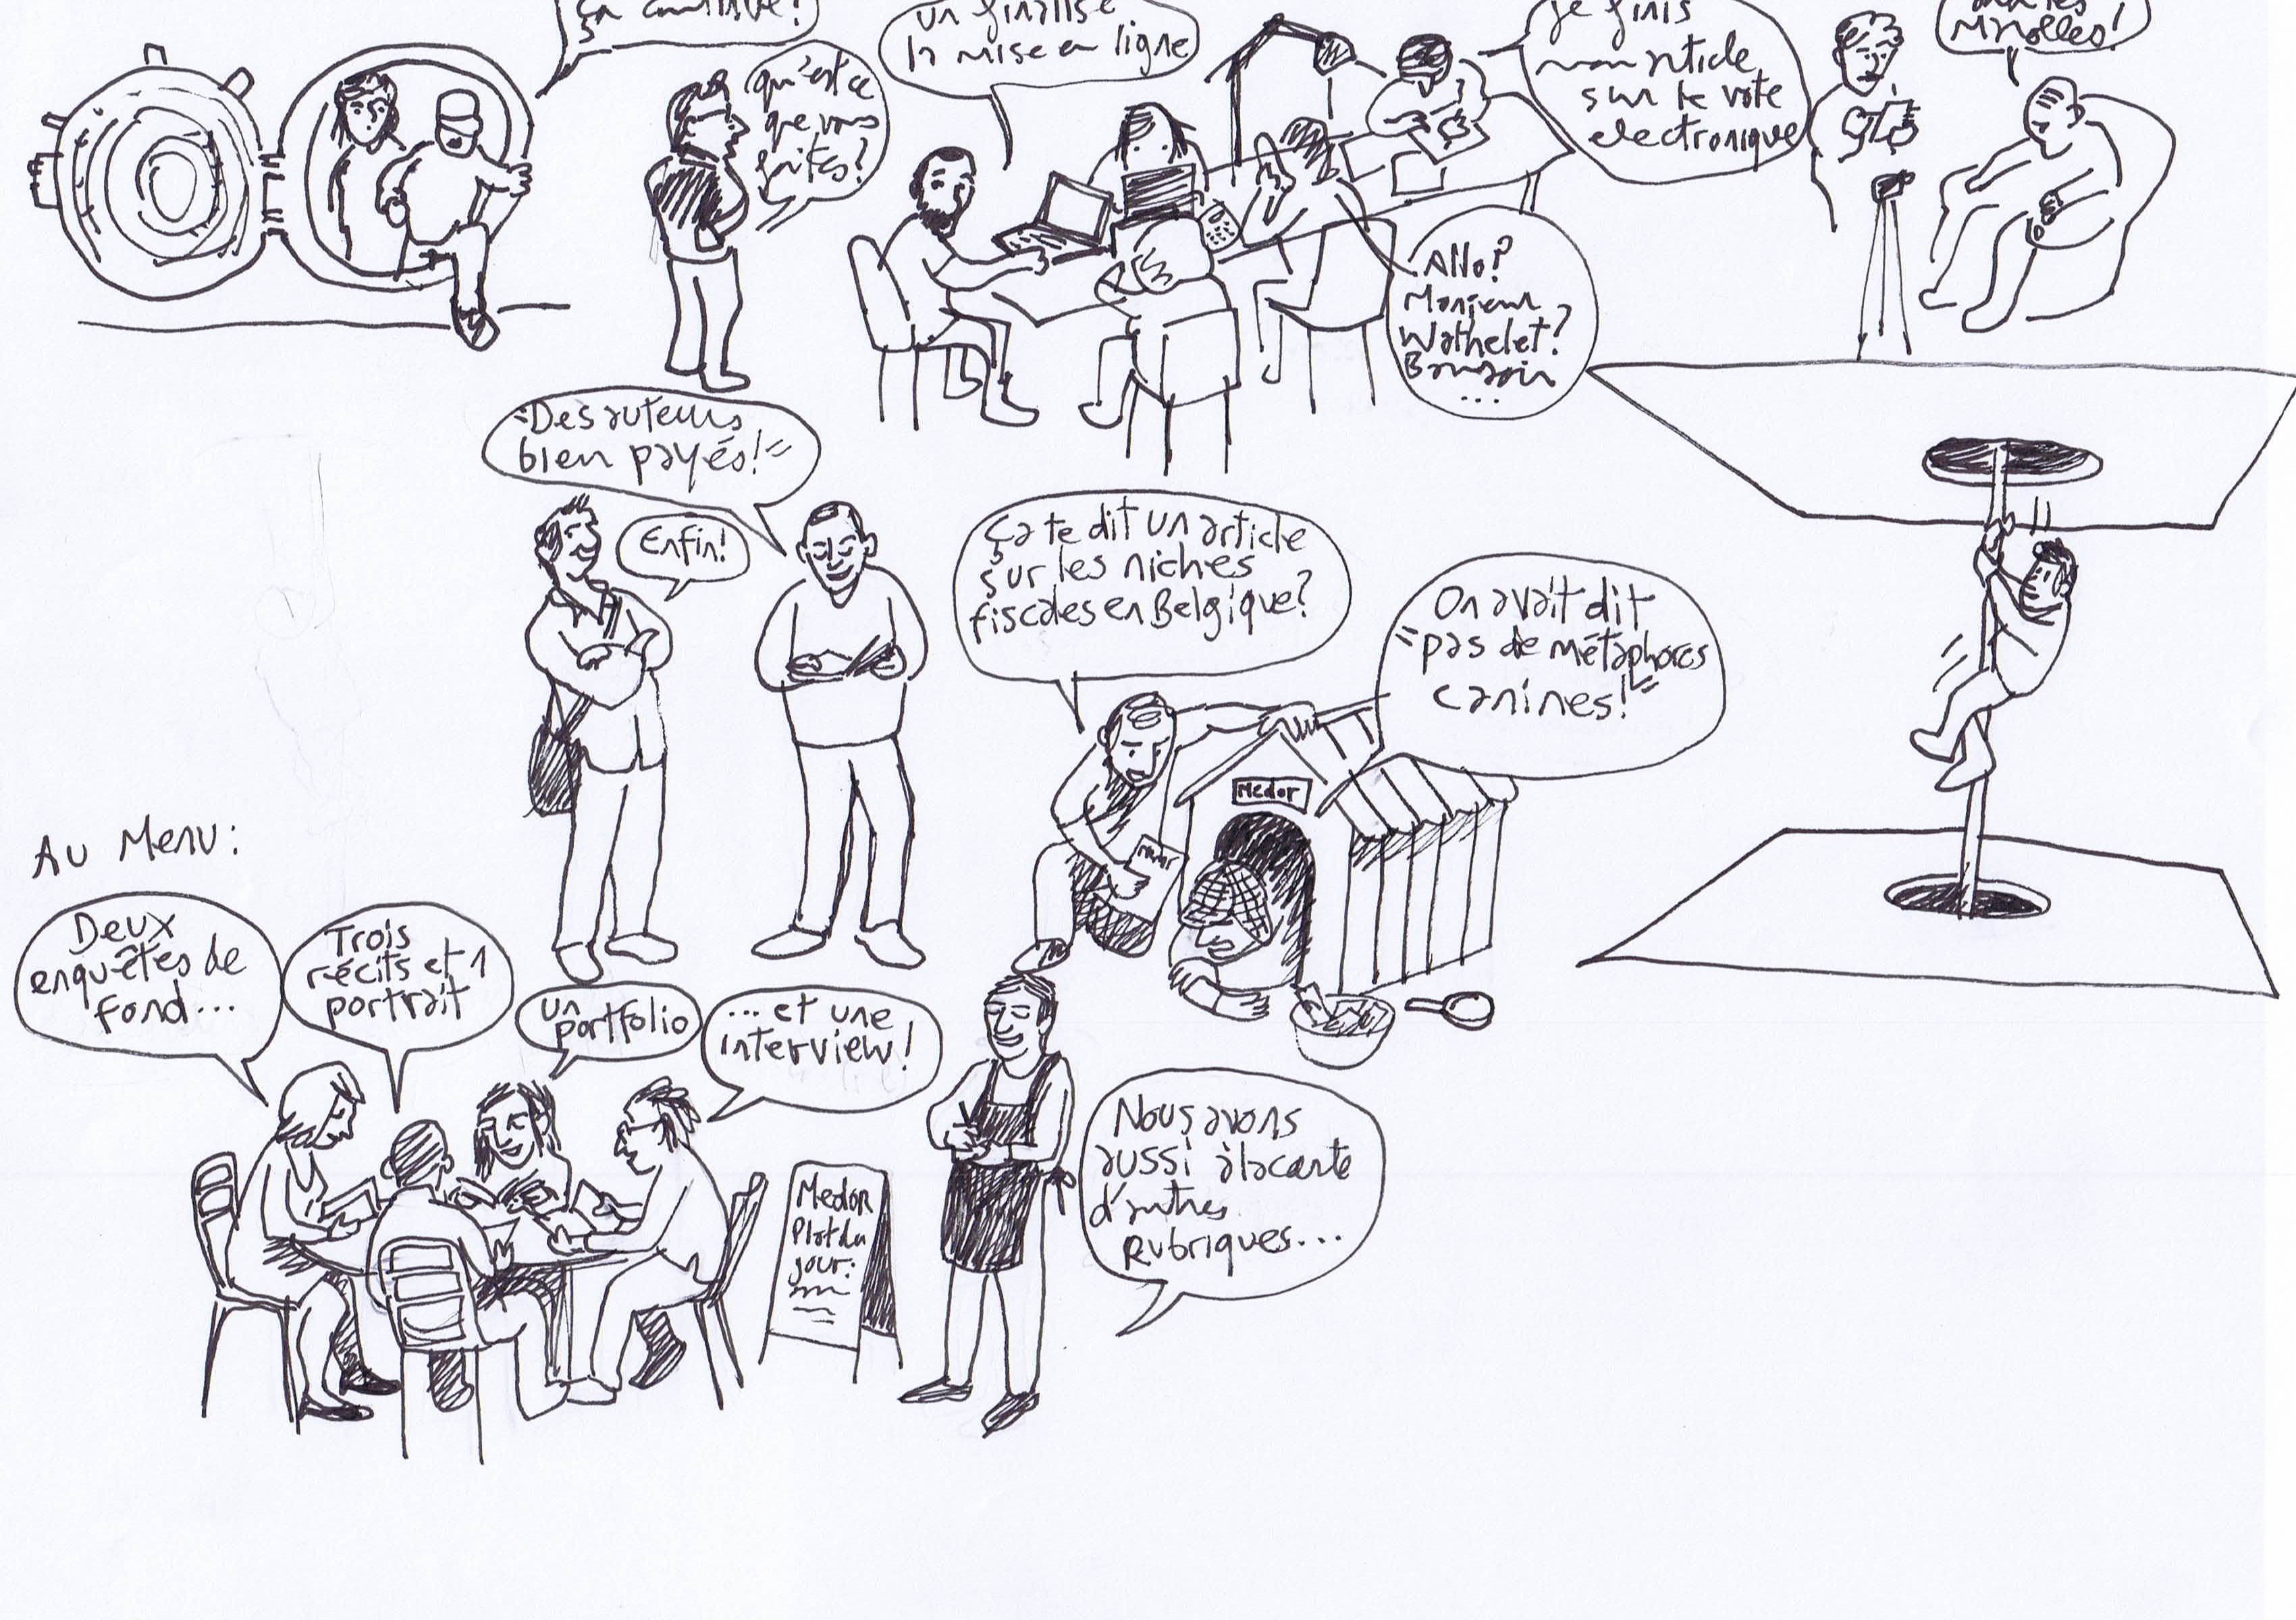 ça continue!
qu'est ce
que vous
faites?
un finalise
la mise en ligne
je finis
mon article
sur le vote
electronique
Marolles!
Allo?
Monsieur
Wathelet?
Bonsoir
...
"Des auteurs
bien payés!"
Enfin!
Ça te dit un article
sur les niches
fiscales en Belgique?
On avait dit
"pas de métaphores
canines!"
Medor
Medor
Au Menu:
Deux
enquêtes de
fond...
Trois
récits et 1
portrait
un
portfolio
... et une
interview!
Medor
Plat du
jour:
Nous avons
aussi à la carte
d'autres
Rubriques...